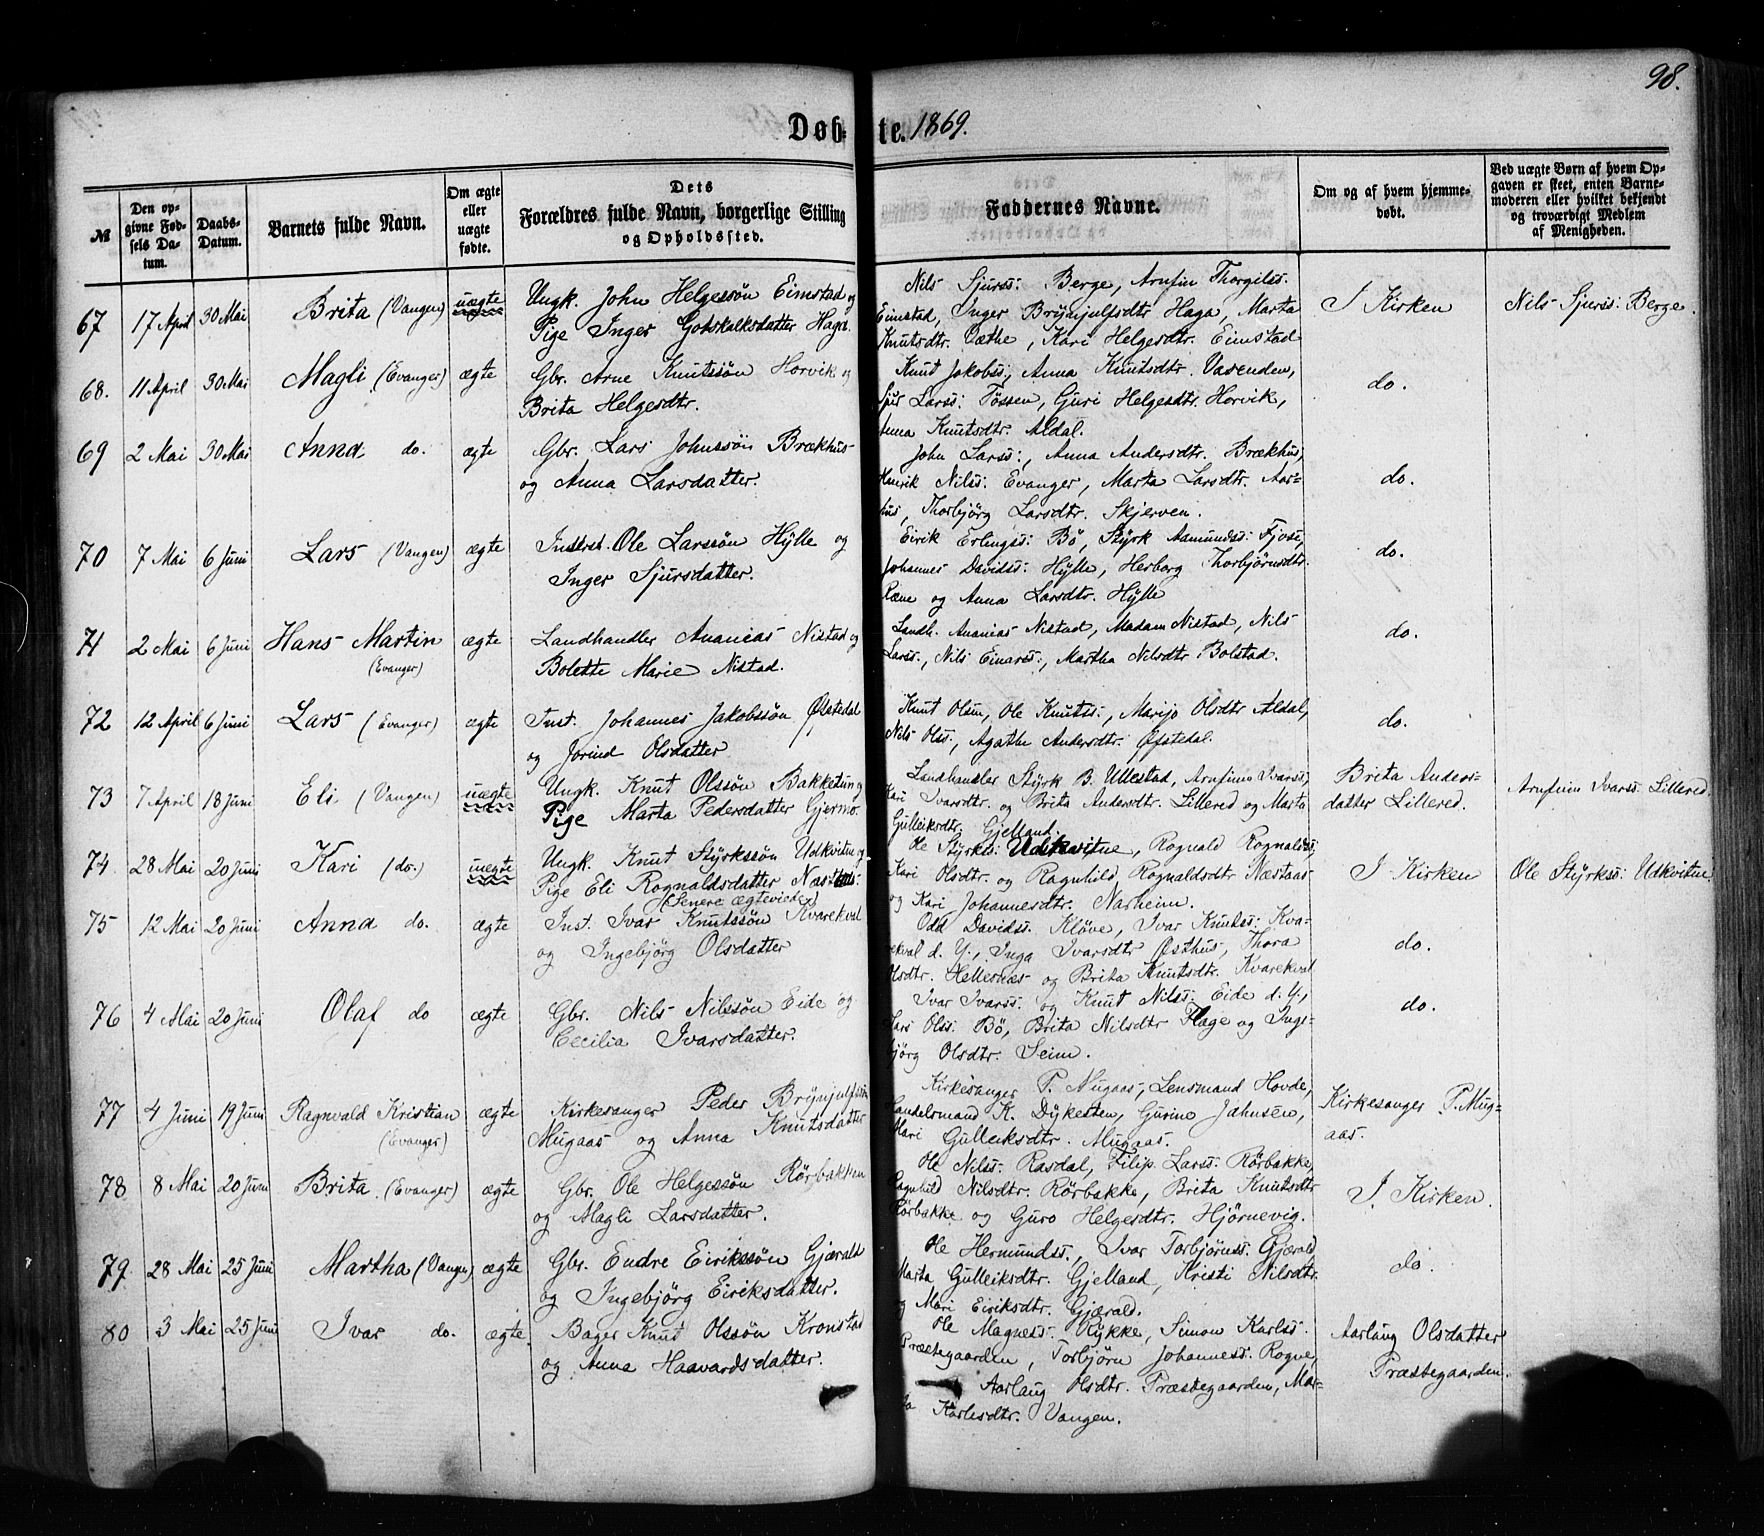 98.
Døbte. 1869.
№
Den opgivne Fødsels Datum.
Daabs-Datum.
Barnets fulde Navn.
Om ægte eller uægte fødte.
Dets Forældres fulde Navn, borgerlige Stilling og Opholdssted.
Faddernes Navne.
Om og af hvem hjemmedøbt.
Ved uægte Børn af hvem Opgaven er skeet, enten Barnemoderen eller hvilket bekjendt og troværdigt Medlem af Menigheden.
67 17 April 30 Mai Brita (Vangen) uægte
Ungk. John Helgessøn Eimstad og
Pige Inger Gotskalksdatter Haga.
Nils Sjurss: Berge, Arnfin Thorgilss.
Eimstad, Inger Brynjulfsdtr Haga, Marta
Knutsdtr. Væthe, Kari Helgesdtr. Eimstad
I Kirken
Nils Sjurss: Berge.
68. 11 April 30 Mai Magli (Evanger) ægte
Gbr. Arne Knutssøn Horvik og
Brita Helgesdtr.
Knut Jakobss:, Anna Knutsdtr. Vasenden,
Sjur Larss: Tøssen, Guri Helgesdtr. Horvik,
Anna Knutsdtr. Aldal.
do.
69 2 Mai 30 Mai Anna do. ægte
Gbr. Lars Johnssøn Brækhus
og Anna Larsdatter.
John Larss:, Anna Andersdtr. Brækhus,
Henrik Nilss: Evanger, Marta Larsdtr. Aar-
hus, Thorbjørg Larsdtr. Skjerven.
do.
70 7 Mai 6 Juni Lars (Vangen) ægte
Inderst. Ole Larssøn Hylle og
Inger Sjursdatter.
Eirik Erlingss: Bø, Styrk Aamundss: Fjose,
Johannes Davidss: Hylle, Herborg Thorbjørnsdtr.
Rene og Anna Larsdtr. Hylle
do.
71 2 Mai 6 Juni Hans Martin (Evanger) ægte
Landhandler Ananias Nistad og
Bolette Marie Nistad.
Landh. Ananias Nistad, Madam Nistad, Nils
Larss., Nils Einarss:, Martha Nilsdtr Bolstad.
do.
72 12 April 6 Juni Lars (Evanger) ægte
Inst. Johannes Jakobssøn Øfstedal
og Jorind Olsdatter
Knut Olsen, Ole Knutss:, Marijo Olsdtr Aldal,
Nils Olss:, Agathe Andersdtr: Øfstedal.
do.
73 7 April 18 Juni Eli (Vangen) uægte
Ungk. Knut Olssøn Bakketun og
Pige Marta Pedersdatter Gjerno.
Landhandler Styrk B. Ullestad, Arnfinn Ivarss,
Kari Ivarsdtr. og Brita Andersdtr. Lillered og Marta
Gulleiksdtr. Gjelland.
Brita Anders-
datter Lillered.
Arnfinn Ivarss: Lillered.
74. 28 Mai 20 Juni Kari (do.) uægte
Ungk. Knut Styrkssøn Udkvitne og
Pige Eli Rognaldsdatter
(Senere ægteviede)
Ole Styrkss: Udkvitne, Rognald Rognaldss,
Kari Olsdtr. og Ragnhild Rognaldsdtr Næstaas
og Kari Johannesdtr. Narheim.
I Kirken
Ole Styrkss: Udkvitne
75 12 Mai 20 Juni Anna do. ægte
Inst. Ivar Knutssøn Kvarekval
og Ingebjørg Olsdatter
Odd Davidss: Kløve, Ivar Knutss: Kva-
rekval d. Y., Inga Ivarsdtr Østhus, Thora
Olsdtr. Hellernæs og Brita Knutsdtr. Kvarekval
do.
76 4 Mai 20 Juni Olaf do ægte
Gbr. Nils Nilssøn Eide og
Cecilia Ivarsdatter.
Ivar Ivarss. og Knut Nilss: Eide d. Y.,
Lars Olss: Bø, Brita Nilsdtr Flage og Inge-
bjørg Olsdtr. Seim.
do.
77 4 Juni 19 Juni Ragnvald Kristian (Evanger) ægte
Kirkesanger Peder Brynjulfssøn
Mugaas og Anna Knutsdatter
Kirkesanger P. Mugaas, Lensmand Hovde,
Handelsmand K. Dykesten, Gurine Jahnsen,
Mari Gulleiksdtr. Mugaas.
Kirkesanger P. Mug-
aas.
78 8 Mai 20 Juni Brita. (Evanger) ægte
Gbr. Ole Helgessøn Rørbakken
og Magli Larsdatter.
Ole Nilss: Rasdal, Filip Larss: Rørbakke,
Ragnhild Nilsdtr. Rørbakke, Brita Knutsdtr
Rørbakke og Guro Helgesdtr. Hjørnevig.
I Kirken.
79. 28 Mai 25 Juni Martha (Vangen) ægte
Gbr. Endre Eirikssøn Gjærald
og Ingebjørg Eiriksdatter.
Ole Hermundss., Ivar Torbjørnss. Gjærald
Marta Gulleiksdtr. Gjelland, Kristi Nilsdtr.
og Mari Eiriksdtr. Gjærald.
do.
80 3 Mai 25 Juni Ivar do. ægte
Bager Knut Olssøn Kronstad
og Anna Haavardsdatter.
Ole Magness: Rykke, Simon Karlss.
Præstegaarden, Torbjørn Johanness: Rogne,
Aarlaug Olsdtr. Præstegaarden, Mar-
ta Karlsdtr. Vangen.
Aarlaug Olsdatter
Præstegaarden.